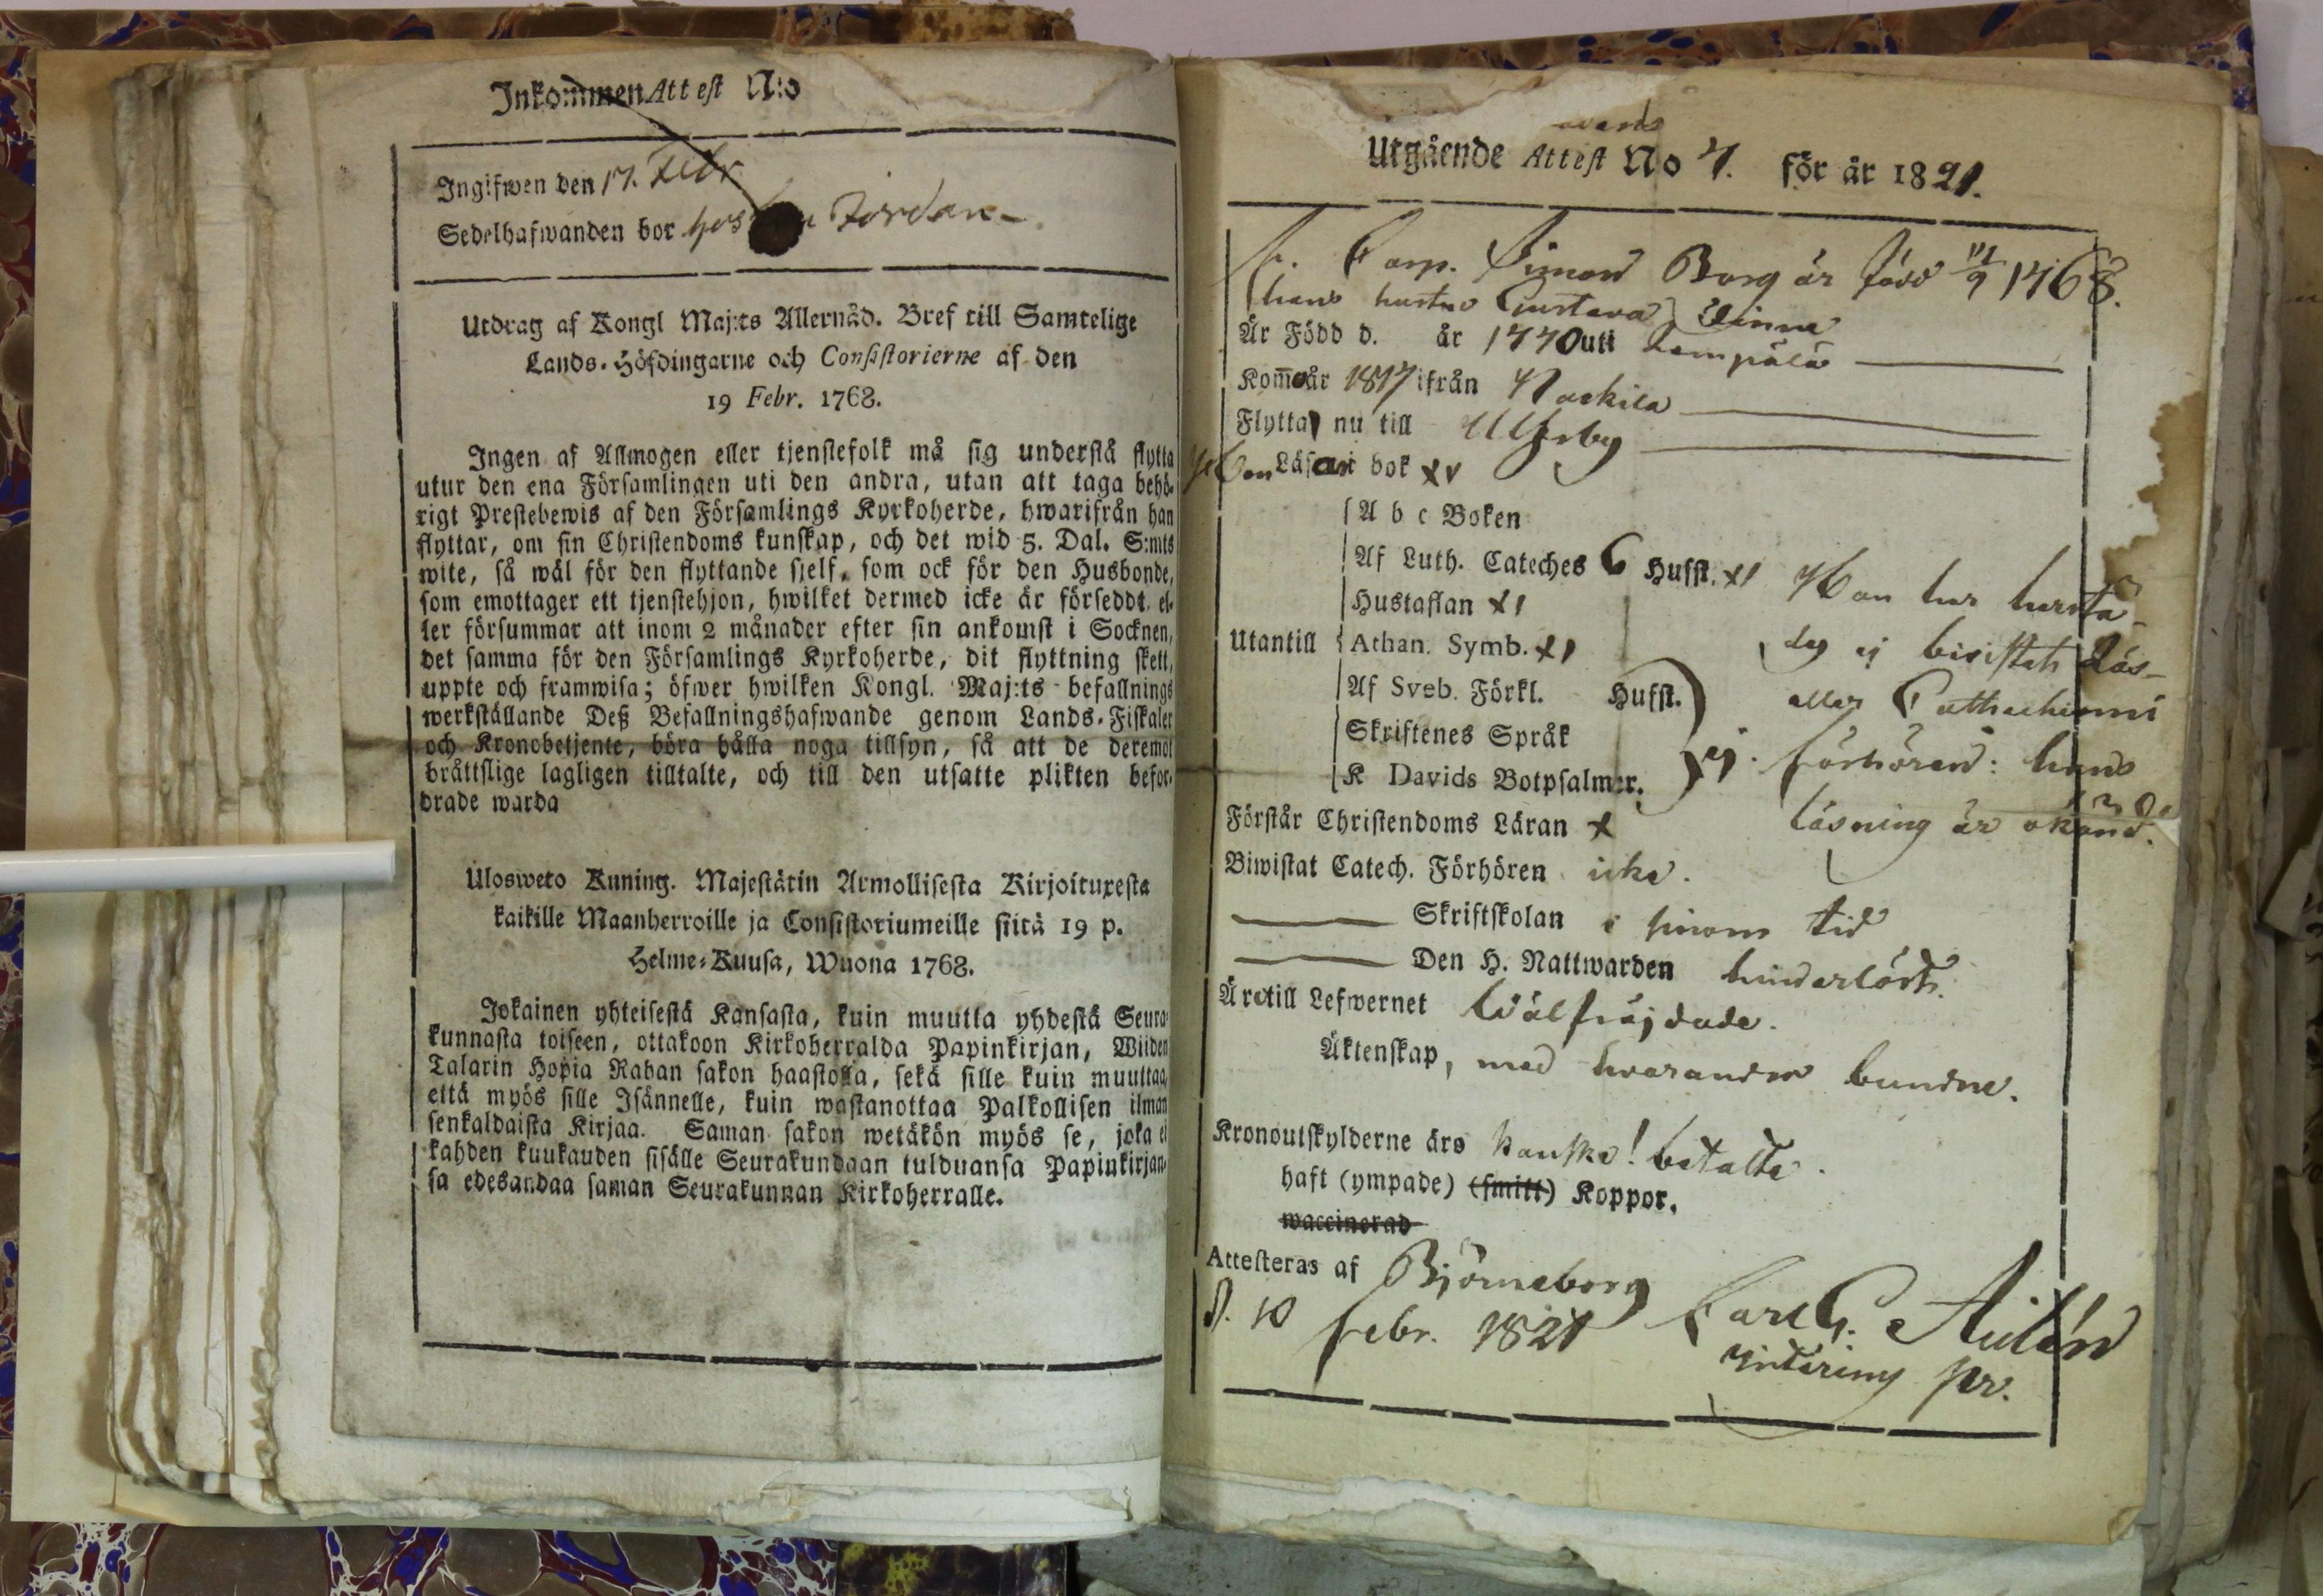 Inkommen Attest N:o
Ingifwen den 17. Febr
Sedelhafwanden bor hos Jordan
Utdrag af Kongl Maj:ts Allernåd. Bref till Samtelige
Lands-Höfdingarne och Consistorierne af den
19 Febr. 1768.
Ingen af Allmogen eller tjenstefolk må sig understå flytta
utur den ena Församlingen uti den andra, utan att taga behö-
rigt Prestebewis af den Församlings Kyrkoherde, hwarifrån han
flyttar, om sin Christendoms kunskap, och det wid 5. Dal. S:mts
wite, så wäl för den flyttande sjelf, som ock för den Husbonde,
som emottager ett tjenstehjon, hwilket dermed icke är förseddt, el-
ler försummar att inom 2 månader efter sin ankomst i Socknen,
det samma för den Församlings Kyrkoherde, dit flyttning skett,
uppte och framwisa; öfwer hwilken Kongl. Maj:ts befallnings
werkställande Deß Befallningshafwande genom Lands-Fiskaler
och Kronobetjente, böra hålla noga tillsyn, så att de deremot
bråttslige lagligen tilltalte, och till den utsatte plikten befor-
drade warda
Ulosweto Kuning. Majestätin Armollisesta Kirjoituxesta
kaikille Maanherroille ja Consistoriumeille siitä 19 p.
Helme-Kuusa, Wuona 1768.
Jokainen yhteisestä Kansasta, kuin muutta yhdestä Seura-
kunnasta toiseen, ottakoon Kirkoherralda Papinkirjan, Wiiden
Talarin Hopia Rahan sakon haastolla, sekä sille kuin muuttaa,
että myös sille Isännelle, kuin wastanottaa Palkollisen ilman
senkaldaista Kirjaa. Saman sakon wetäkön myös se, joka ei
kahden kuukauden sisälle Seurakundaan tulduansa Papinkirjan-
sa edesandaa saman Seurakunnan Kirkoherralle.
Utgående Attest No 7. för år 1821.
Corp. Simon Borg är född 1768.
hans hustru Gustava
Är Född d. år 1770 uti Lempälä
Kommo år 1817 ifrån Nackila
Flytta nu till Ulfsby
Läsa i bok
A b c Boken
Af Luth. Cateches 6 Hufst. Han har
Hustaflan
Utantill Athan. Symb. ej bivistat Läs-
Af Sveb. Förkl. Hufst. eller
Skriftenes Språk ej. förhören: hans
K Davids Botpsalmer.
Förstår Christendoms Läran x läsning är okänd.
Biwistat Catech. Förhören icke.
Skriftskolan i sinom tid
Den H. Nattwarden hinderlöst.
Äro till Lefwernet Wälfräjdade.
Äktenskap, med hvarandra bundne.
Kronoutskylderne äro kanske! betalte.
haft (ympade) (smitt) Koppor.
waccinerad
Attesteras af Björneborg
d. 10 Febr. 1821 Carl G.
pr.